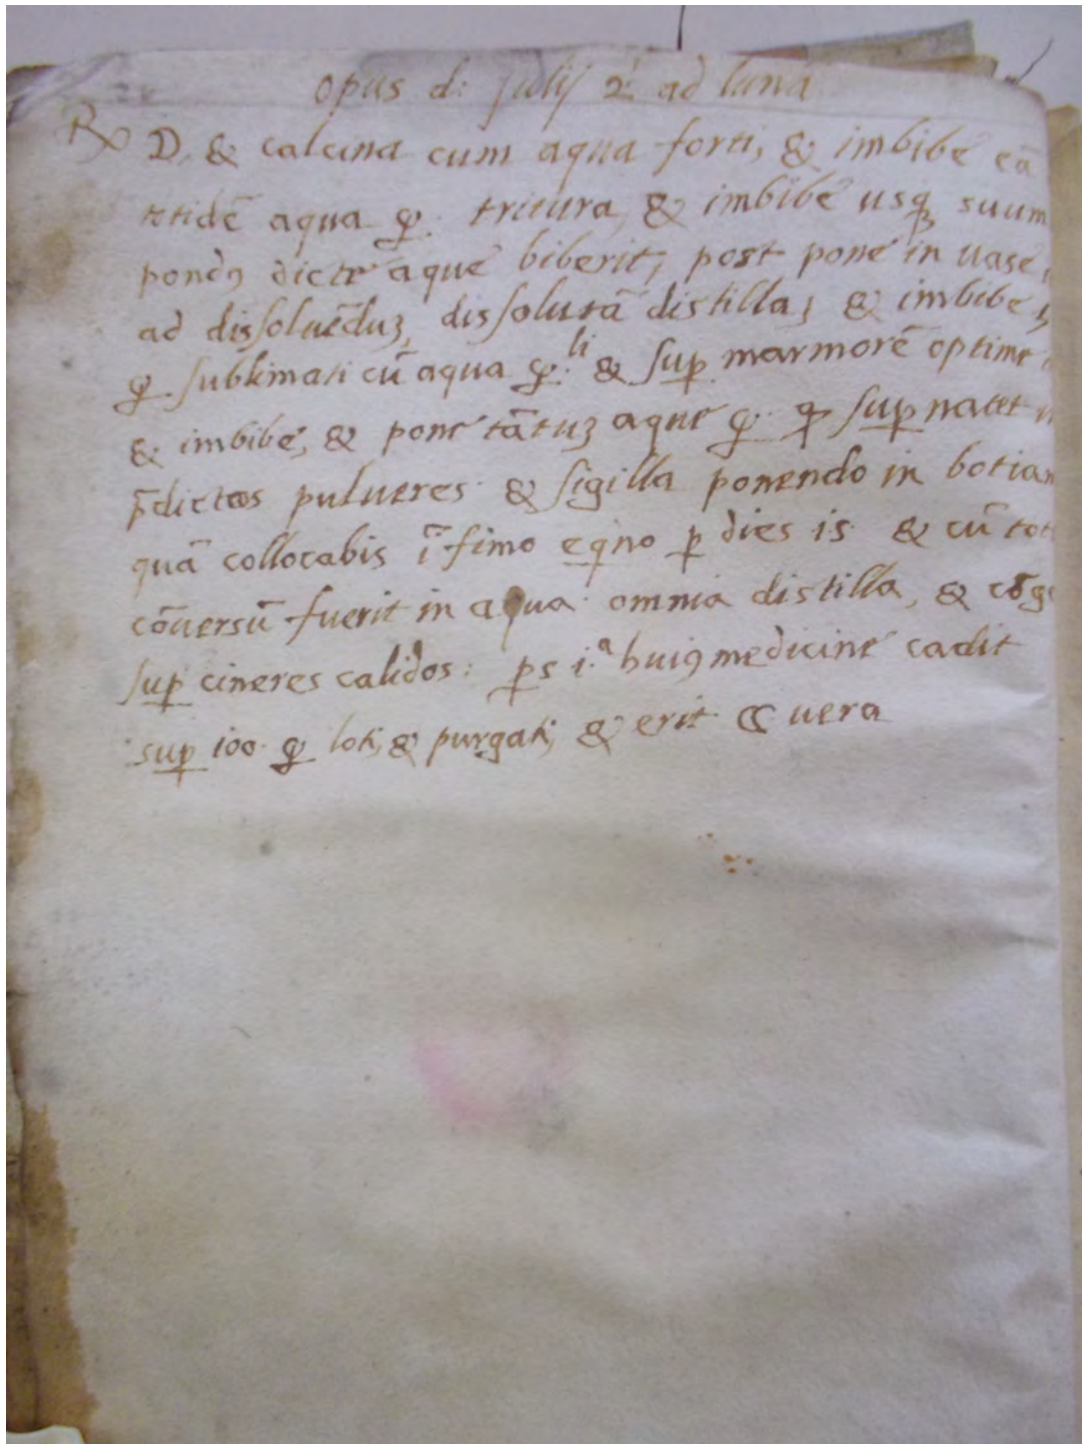 opus d: Julij 2i ad luna
℞ D, & calcina cum aqua forti, & imbibe eā
totidē aqua ☿. tritura, & imbibe usqꝫ suum
pondꝰ dicte aque biberit; post pone in uase
ad dissoluēduꝫ, dissolutā distilla, & imbibe
☿. sublimati cū aqua ☿.li & suꝑ marmorē optime
& imbibe, & pone tātuꝫ aque ☿. ꝙ suꝑnatet
p̄dictos pulueres & sigilla ponendo in botiam
quā collocabis ī fimo eqno ꝑ dies is & cū
cōuersū fuerit in aqua omnia distilla, &
suꝑ cineres calidos: ꝑs i.ª huiꝰ medicine cadit
suꝑ ioo ☿ loti, & purgati, & erit ☾ uera